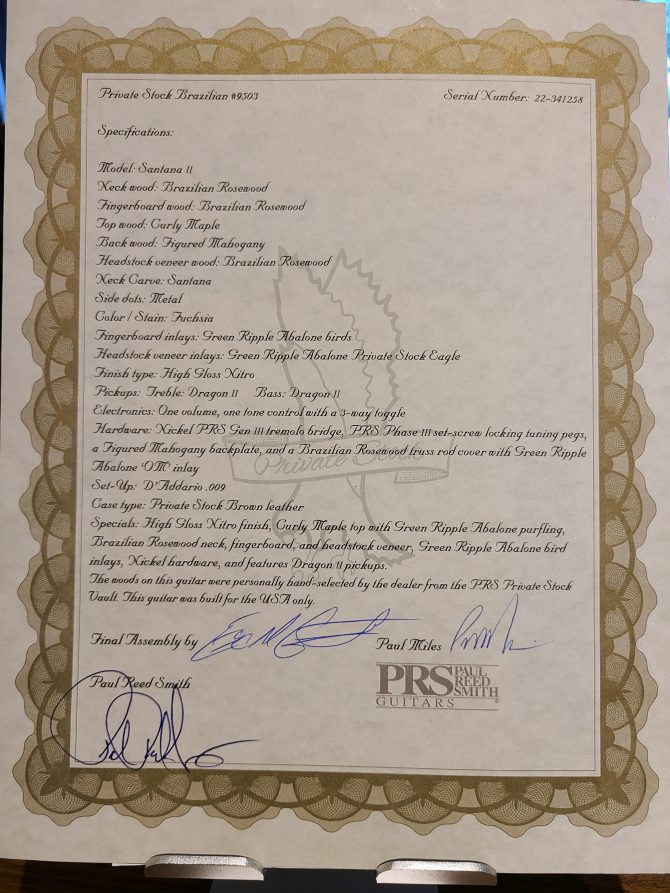 Private Stock Brazilian #9503 Serial Number: 22-341258
Specifications:
Model: Santana II
Neck wood: Brazilian Rosewood
Fingerboard wood: Brazilian Rosewood
Top wood: Curly Maple
Back wood: Figured Mahogany
Headstock veneer wood: Brazilian Rosewood
Neck Carve: Santana
Side dots: Metal
Color / Stain: Fuchsia
Fingerboard inlays: Green Ripple Abalone birds
Headstock veneer inlays: Green Ripple Abalone Private Stock Eagle
Finish type: High Gloss Nitro
Pickups: Treble: Dragon II Bass: Dragon II
Electronics: One volume, one tone control with a 3-way toggle
Hardware: Nickel PRS Gen III tremolo bridge, PRS Phase III set-screw locking tuning pegs,
a Figured Mahogany backplate, and a Brazilian Rosewood truss rod cover with Green Ripple
Abalone 'OM' inlay
Private Stock
Set-Up: D'Addario .009
Case type: Private Stock Brown leather
Specials: High Gloss Nitro finish, Curly Maple top with Green Ripple Abalone purfling,
Brazilian Rosewood neck, fingerboard, and headstock veneer, Green Ripple Abalone bird
inlays, Nickel hardware, and features Dragon II pickups.
The woods on this guitar were personally hand-selected by the dealer from the PRS Private Stock
Vault. This guitar was built for the USA only.
Final Assembly by
Paul Miles
Paul Reed Smith
PRS PAUL REED SMITH
GUITARS ®